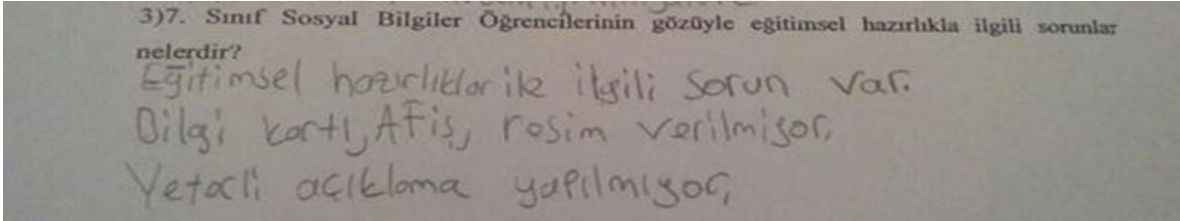 3)7. Sınıf Sosyal Bilgiler Öğrencilerinin gözüyle eğitimsel hazırlıkla ilgili sorunlar
nelerdir?
Eğitimsel hazırlıklar ile ilgili sorun var.
Bilgi kartı, Afiş, resim verilmiyor,
Yeterli açıklama yapılmıyor,